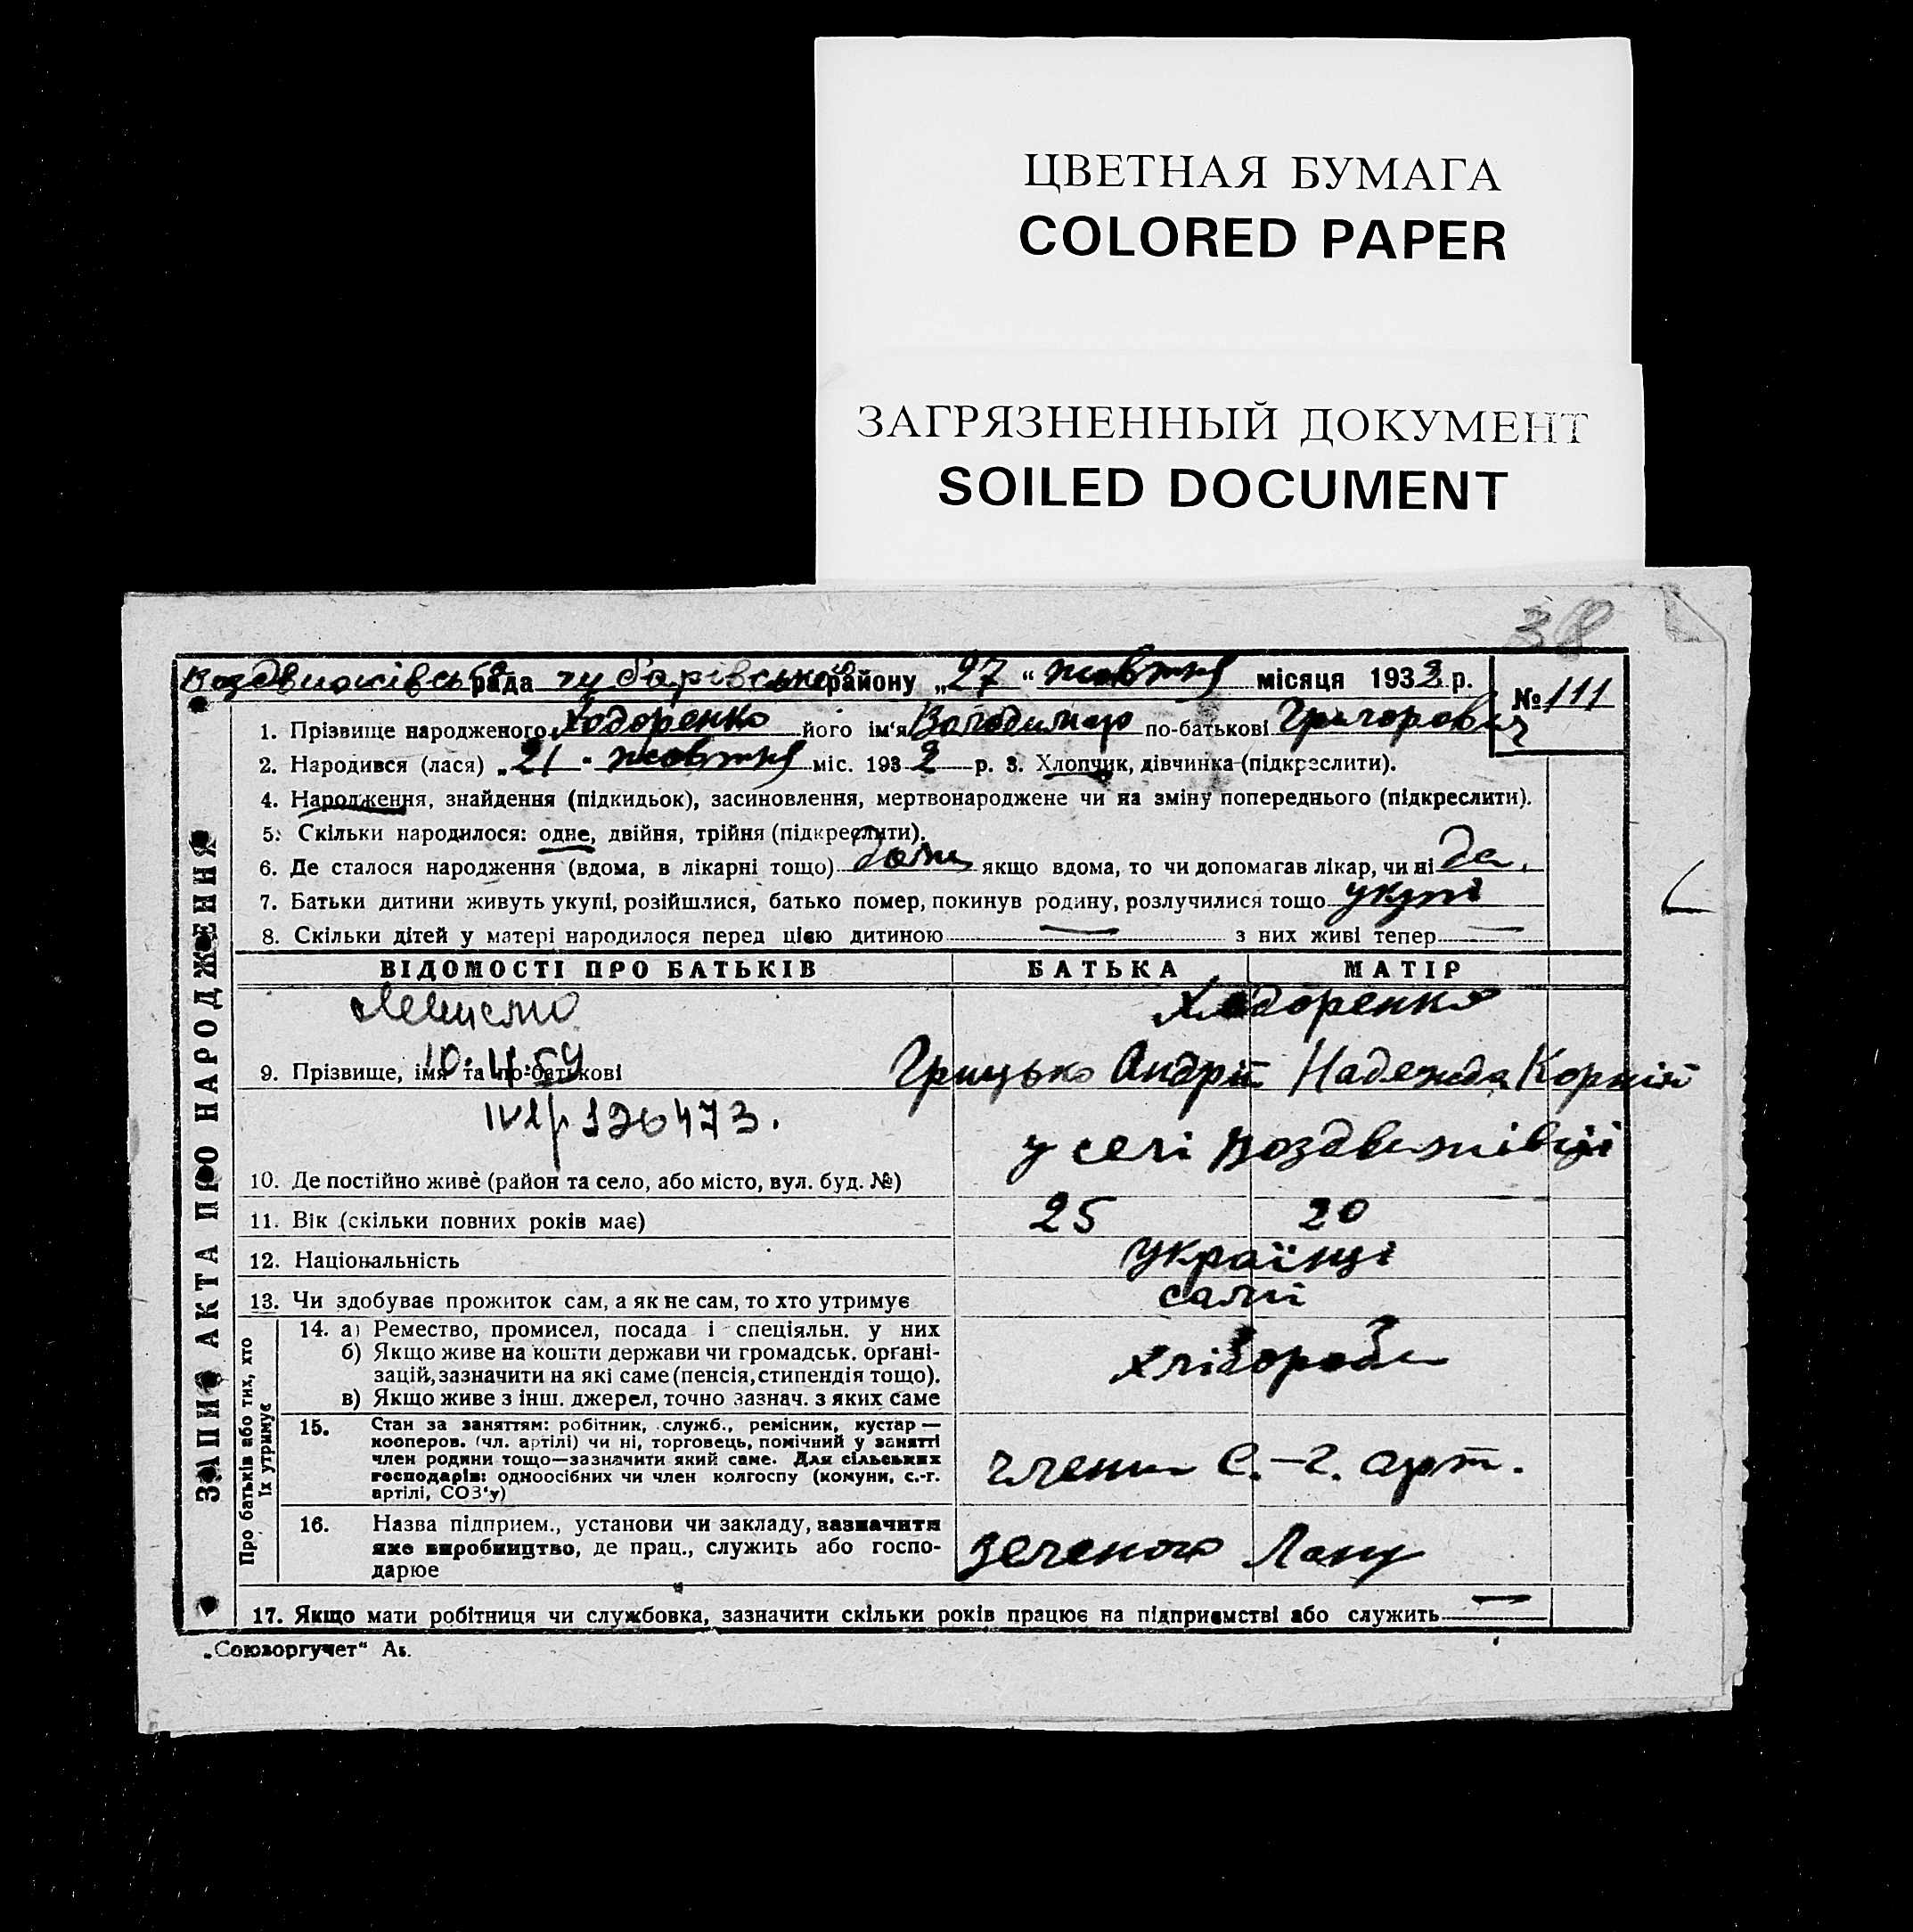 ЦВЕТНАЯ БУМАГА
COLORED PAPER
ЗАГРЯЗНЕННЫЙ ДОКУМЕНТ
SOILED DOCUMENT
38
рада чубарівського району „27“ жовтня місяця 1932 р.
№ 111
1. Прізвище народженого Ходоренко його ім'я Володимир по-батькові Григорович
2. Народився (лася) „21" жовтня міс. 1932 р. 3. Хлопчик, дівчинка (підкреслити).
4. Народження, знайдення (підкидьок), засиновлення, мертвонароджене чи на зміну попереднього (підкреслити).
5. Скільки народилося: одне, двійня, трійня (підкреслити).
6. Де сталося народження (вдома, в лікарні тощо) дома якщо вдома, то чи допомагав лікар, чи ні да.
7. Батьки дитини живуть укупі, розійшлися, батько помер, покинув родину, розлучилися тощо укупі
8. Скільки дітей у матері народилося перед цією дитиною — з них живі тепер —
ЗАПИС АКТА ПРО НАРОДЖЕННЯ
ВІДОМОСТІ ПРО БАТЬКІВ БАТЬКА МАТІР
Ходоренко
9. Прізвище, імя та по-батькові Грицько Андрій Надежда Корній
126473.
у селі Воздвижівці
10. Де постійно живе (район та село, або місто, вул. буд. №)
11. Вік (скільки повних років має) 25 20
12. Національність українці
13. Чи здобуває прожиток сам, а як не сам, то хто утримує самі
Про батьків або тих, хто їх утримує
14. а) Ремество, промисел, посада і спеціяльн. у них
б) Якщо живе на кошти держави чи громадськ. органі-
зацій, зазначити на які саме (пенсія, стипендія тощо).
в) Якщо живе з інш. джерел, точно зазнач. з яких саме
хлібороби
15. Стан за заняттям: робітник, служб., ремісник, кустар —
кооперов. (чл. артілі) чи ні, торговець, помічний у занятті
член родини тощо—зазначити який саме. Для сільських
господарів: одноосібних чи член колгоспу (комуни, с.-г.
артілі, СОЗ'у)
члени С.-г. арт.
16. Назва підприєм., установи чи закладу, зазначити
яке виробництво, де прац., служить або госпо-
дарює
Зеленого Лану
17. Якщо мати робітниця чи службовка, зазначити скільки років працює на підприємстві або служить —
„Союзоргучет"